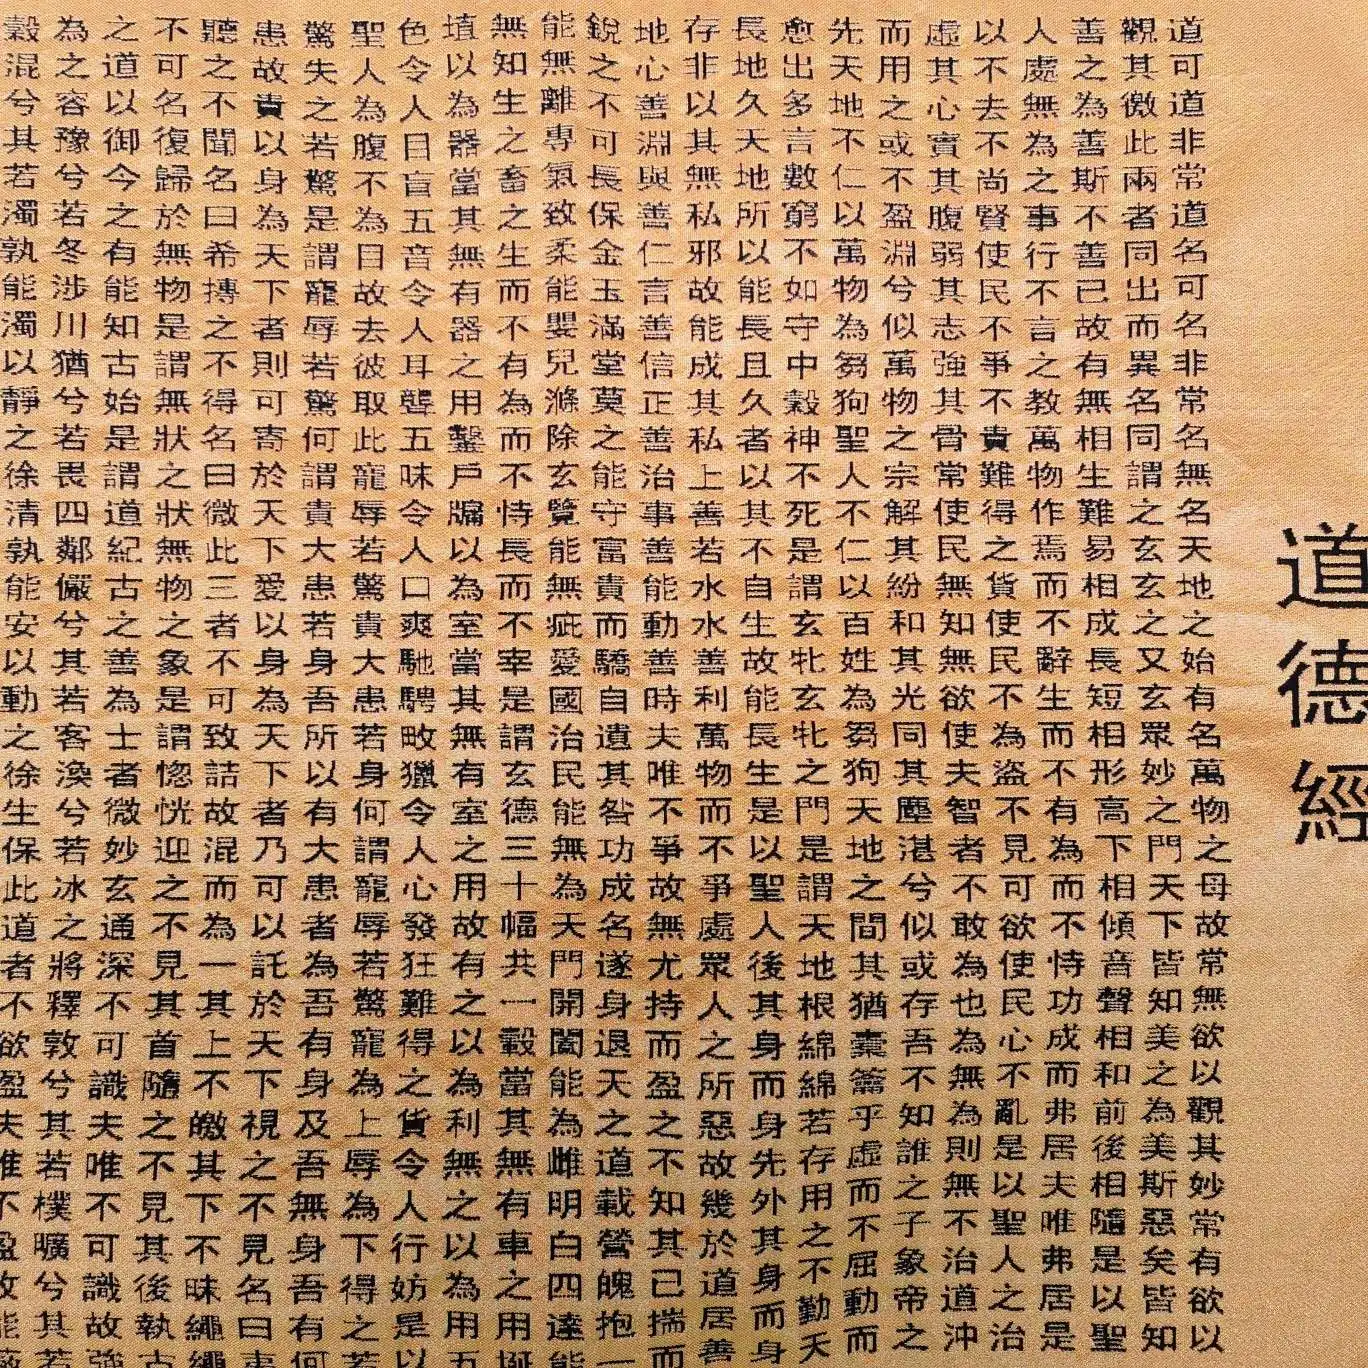 道德經
道可道非常道名可名非常名無名天地之始有名萬物之母故常無欲以觀其妙常有欲以
觀其徼此兩者同出而異名同謂之玄玄之又玄眾妙之門天下皆知美之為美斯惡矣皆知
善之為善斯不善已故有無相生難易相成長短相形高下相傾音聲相和前後相隨是以聖
人處無為之事行不言之教萬物作焉而不辭生而不有為而不恃功成而弗居夫唯弗居是
以不去不尚賢使民不爭不貴難得之貨使民不為盜不見可欲使民心不亂是以聖人之治
虛其心實其腹弱其志強其骨常使民無知無欲使夫智者不敢為也為無為則無不治道沖
而用之或不盈淵兮似萬物之宗解其紛和其光同其塵湛兮似或存吾不知誰之子象帝之
先天地不仁以萬物為芻狗聖人不仁以百姓為芻狗天地之間其猶橐籥乎虛而不屈動而
愈出多言數窮不如守中穀神不死是謂玄牝玄牝之門是謂天地根綿綿若存用之不勤天
長地久天地所以能長且久者以其不自生故能長生是以聖人後其身而身先外其身而身
存非以其無私邪故能成其私上善若水水善利萬物而不爭處眾人之所惡故幾於道居善
地心善淵與善仁言善信正善治事善能動善時夫唯不爭故無尤持而盈之不知其已揣而
銳之不可長保金玉滿堂莫之能守富貴而驕自遺其咎功成名遂身退天之道載營魄抱一
能無離專氣致柔能嬰兒滌除玄覽能無疵愛國治民能無為天門開闔能為雌明白四達能
無知生之畜之生而不有為而不恃長而不宰是謂玄德三十幅共一轂當其無有車之用埏
埴以為器當其無有器之用鑿戶牖以為室當其無有室之用故有之以為利無之以為用五
色令人目盲五音令人耳聾五味令人口爽馳騁畋獵令人心發狂難得之貨令人行妨是以
聖人為腹不為目故去彼取此寵辱若驚貴大患若身何謂寵辱若驚寵為上辱為下得之若
驚失之若驚是謂寵辱若驚何謂貴大患若身吾所以有大患者為吾有身及吾無身吾有何
患故貴以身為天下者則可寄於天下愛以身為天下者乃可以託於天下視之不見名曰夷
聽之不聞名曰希搏之不得名曰微此三者不可致詰故混而為一其上不皦其下不昧繩繩
不可名復歸於無物是謂無狀之狀無物之象是謂惚恍迎之不見其首隨之不見其後執古
之道以御今之有能知古始是謂道紀古之善為士者微妙玄通深不可識夫唯不可識故強
為之容豫兮若冬涉川猶兮若畏四鄰儼兮其若客渙兮若冰之將釋敦兮其若樸曠兮其若
穀混兮其若濁孰能濁以靜之徐清孰能安以動之徐生保此道者不欲盈夫唯不盈故能蔽